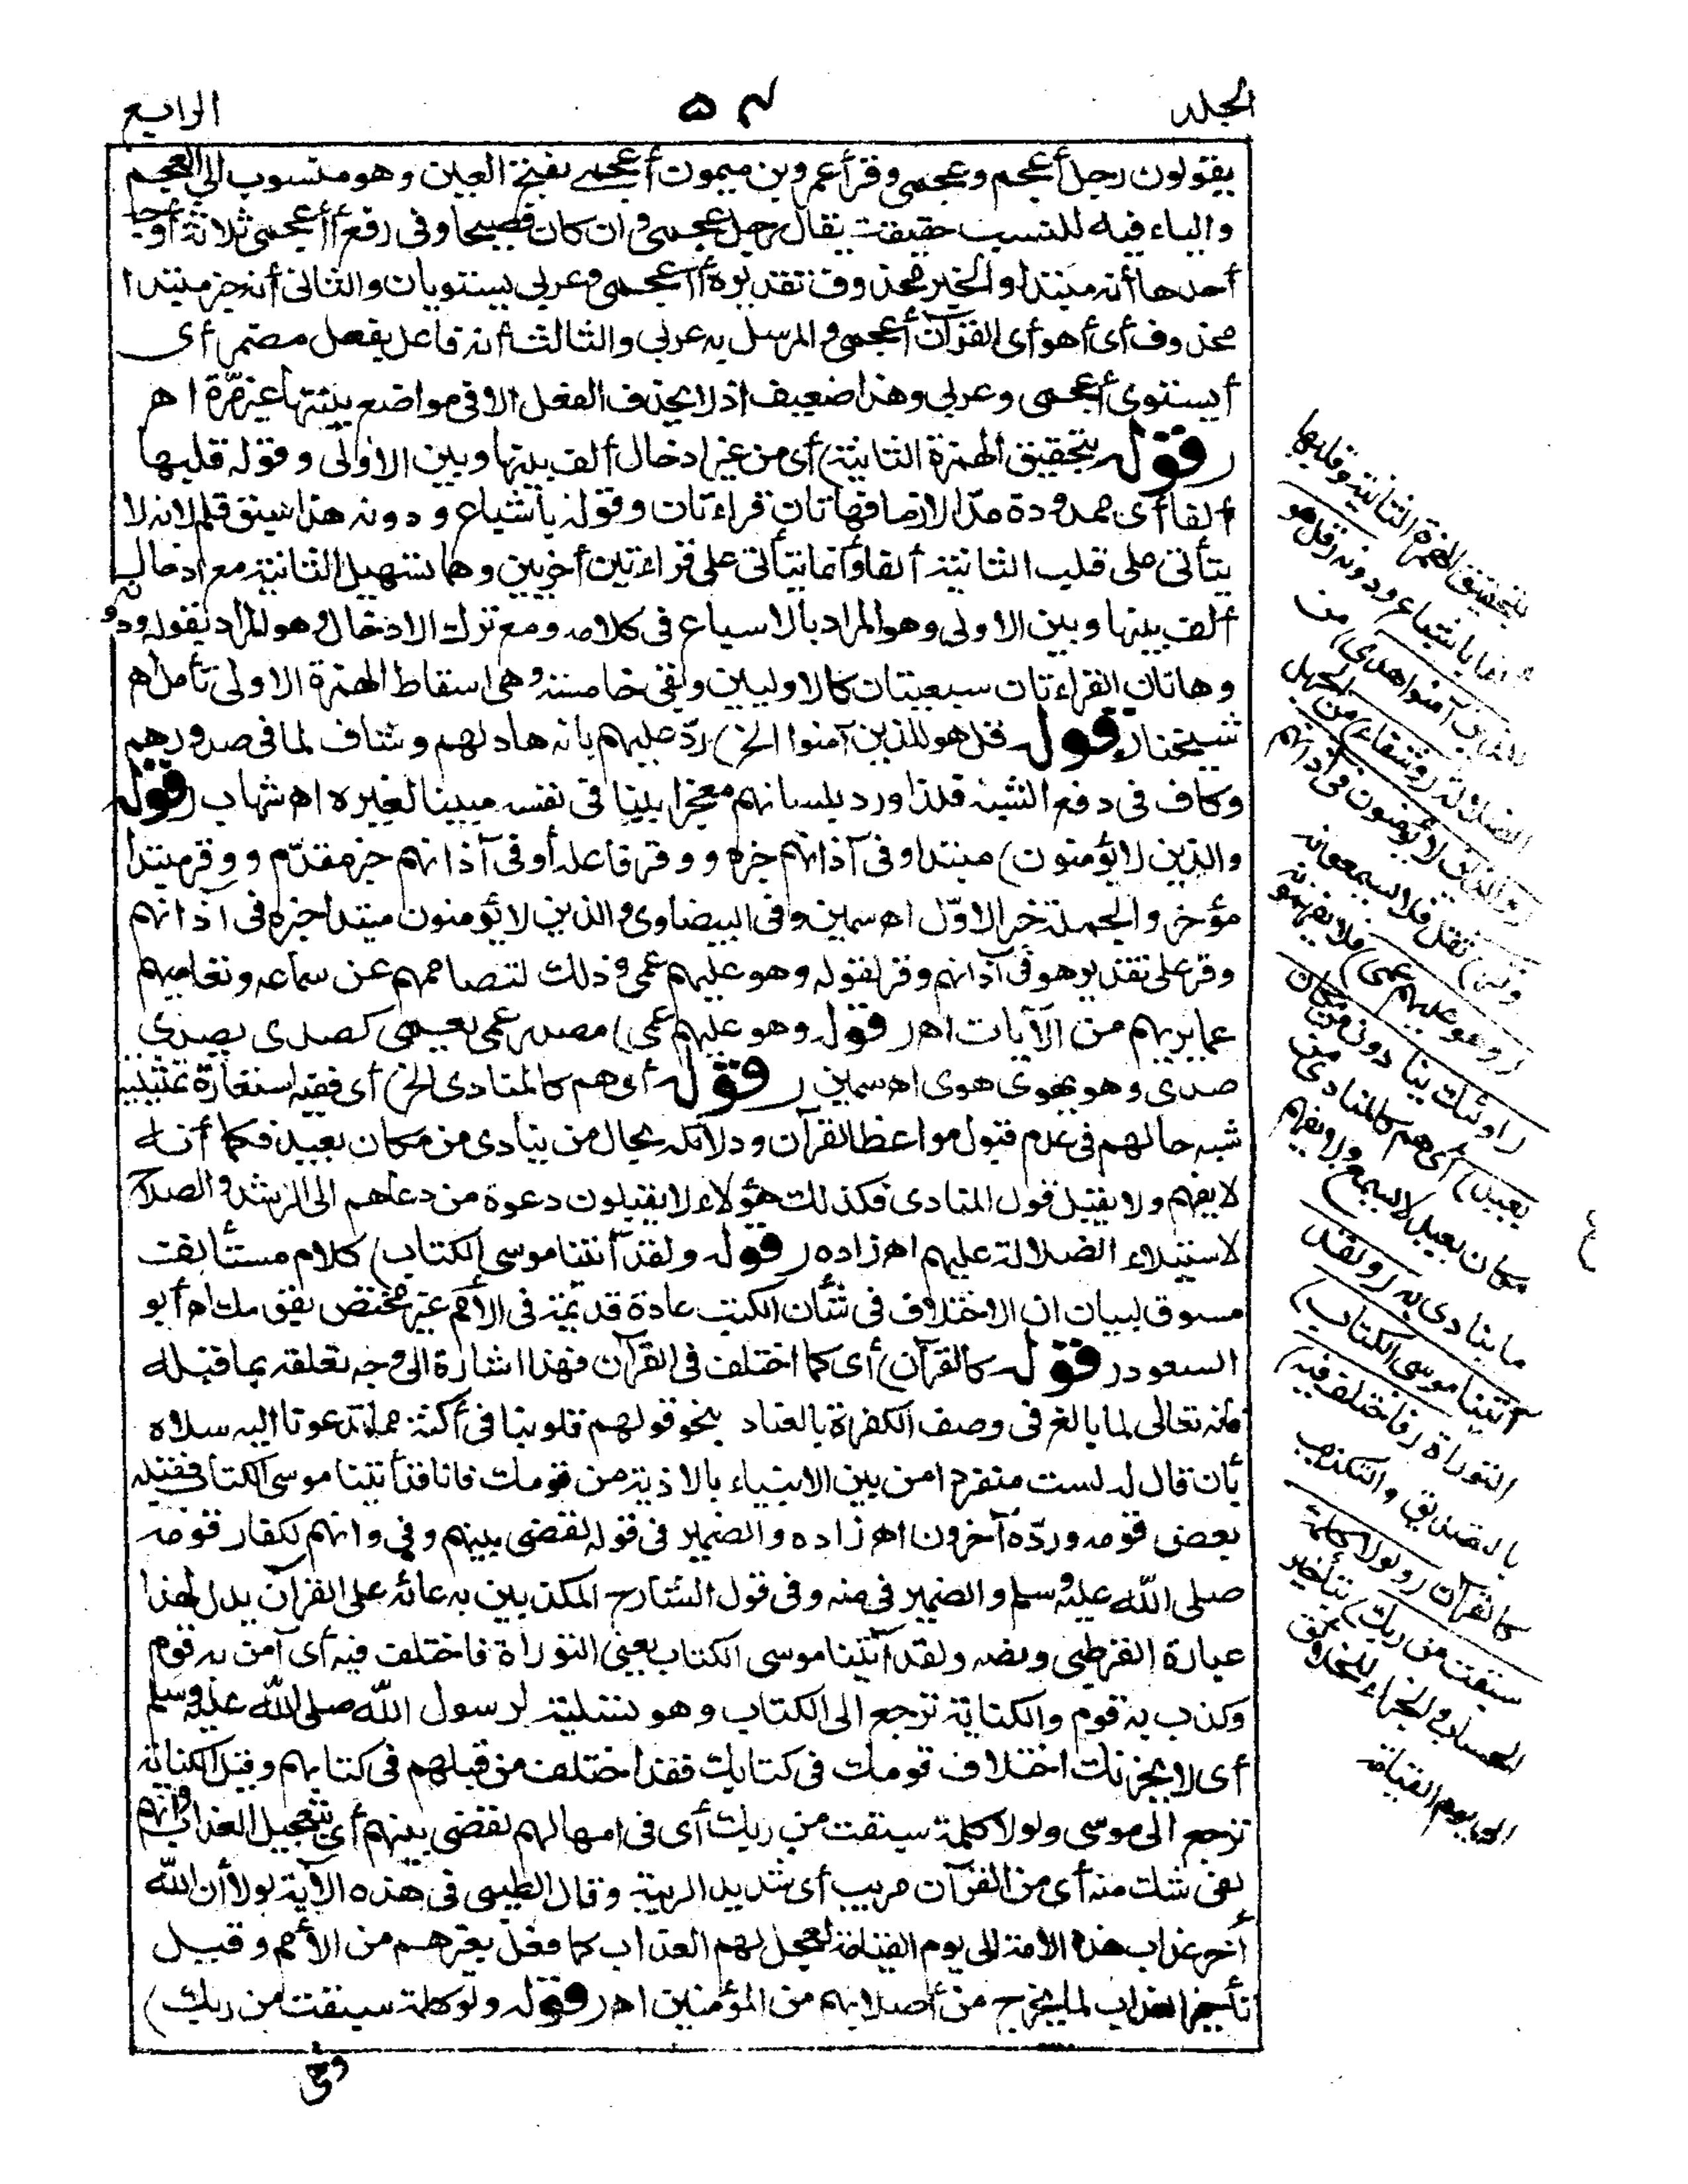 الجلد
٥٤
الرابع
يقولون رجل أعجم وعجمى وقرأ عمرو بن ميمون أعجمى بفتح العين وهو منسوب الى العجم
والياء فيه للنسب حقيقة يقال رجل عجمى وان كان فصيحا وفى رفع أأعجمى ثلاثة أوجه
أحدها أنه مبتدا والخبر محذوف تقديره أأعجمى وعربى يستويان والثانى أنه خبر مبتدا
محذوف أى أهو أى القرآن أعجمى والمرسل به عربى والثالث أنه فاعل بفعل مضمر أى
أيستوى أعجمى وعربى وهذا ضعيف اذ لا يحذف الفعل الا فى مواضع بينتها غير مرّة اه
(قوله بتحقيق الهمزة الثانية) أى من غير ادخال ألف بينها وبين الاولى وقوله قلبها
ألفا أى ممدودة مدّا لازما فهاتان قراءتان وقوله باشباع ودونه هذا سبق قلم لانه لا
يتأتى على قلب الثانية ألفا وانما يتأتى على قراءتين أخريين وهما تسهيل الثانية مع ادخال
ألف بينها وبين الاولى وهو المراد بالاسباع فى كلامه ومع ترك الادخال وهو المراد بقوله ودونه
وهاتان القراءتان سبعيتان كالاوليين وبقى خامسة وهى اسقاط الهمزة الاولى تأمل اه
شيخنا (قوله قل هو للذين آمنوا الخ) ردّ عليهم بانه هاد لهم وشاف لما فى صدورهم
وكاف فى دفع الشبه فلذا ورد بلسانهم معجزا بينا فى نفسه مبينا لغيره اه شهاب (قوله
والذين لا يؤمنون) مبتدا وفى آذانهم خبره ووقر فاعله أو فى آذانهم خبر مقدّم ووقر مبتدا
مؤخر والجملة خبر الاوّل اه سمين وفى البيضاوى والذين لا يؤمنون مبتدا خبره فى آذانهم
وقر على تقدير هو فى آذانهم وقر لقوله وهو عليهم عمى وذلك لتصاممهم عن سماعه وتعاميهم
عما يريهم من الآيات اه (قوله وهو عليهم عمى) مصدر عمى يعمى كصدى يصدى
صدى وهوى يهوى هوى اه سمين (قوله أى هم كالمنادى الخ) أى ففيه استعارة تمثيلية
شبه حالهم فى عدم قبول مواعظ القرآن ودلائله بحال من ينادى من مكان بعيد فكما أنه
لا يفهم ولا يقبل قول المنادى فكذلك هؤلاء لا يقبلون دعوة من دعاهم الى الرشد والصلاح
لاستيلاء الضلالة عليهم اه زاده (قوله ولقد آتينا موسى الكتاب) كلام مستأنف
مسوق لبيان ان الاختلاف فى شأن الكتب عادة قديمة فى الأمم غير مختص بقومك اه أبو
السعود (قوله كالقرآن) أى كما اختلف فى القرآن فهذا اشارة الى وجه تعلقه بما قبله
فانه تعالى لما بالغ فى وصف الكفرة بالعناد بنحو قولهم قلوبنا فى أكنة مما تدعونا اليه سلاه
بأن قال له لست منفردا من بين الانبياء بالاذية من قومك فانا قد آتينا موسى الكتاب فقبله
بعض قومه وردّه آخرون اه زاده والضمير فى قوله لقضى بينهم وفى وانهم لكفار قومه
صلى الله عليه وسلم والضمير فى منه وفى قول الشارح المكذبين به عائد على القرآن يدل لهذا
عبارة القرطبى ونصه ولقد آتينا موسى الكتاب يعنى التوراة فاختلف فيه أى آمن به قوم
وكذب به قوم والكناية ترجع الى الكتاب وهو تسلية لرسول الله صلى الله عليه وسلم
أى لا يحزنك اختلاف قومك فى كتابك فقد اختلف من قبلهم فى كتابهم وقيل الكناية
ترجع الى موسى ولولا كلمة سبقت من ربك أى فى امهالهم لقضى بينهم أى بتعجيل العذاب وانهم
لفى شك منه أى من القرآن مريب أى شديد الريبة وقال الطيبى فى هذه الآية لولا أن الله
أخر عذاب هذه الامة الى يوم القيامة لعجل لهم العذاب كما فعل بغيرهم من الأمم وقيل
تأخير العذاب لما يخرج من أصلابهم من المؤمنين اه (قوله ولولا كلمة سبقت من ربك)
وفى
بتحقيق الهمزة الثانية وقلبها
ألفا باشباع ودونه (قل هو
للذين آمنوا هدى) من
الضلالة (وشفاء) من الجهل
(والذين لا يؤمنون فى آذانهم
وقر) ثقل فلا يسمعونه
(وهو عليهم عمى) فلا يفهمونه
(أولئك ينادون من مكان
بعيد) أى هم كالمنادى من
مكان بعيد لا يسمع ولا يفهم
ما ينادى به (ولقد
آتينا موسى الكتاب)
التوراة (فاختلف فيه)
بالتصديق والتكذيب
كالقرآن (ولولا كلمة
سبقت من ربك) بتأخير
الحساب والجزاء للخلائق
الى يوم القيامة